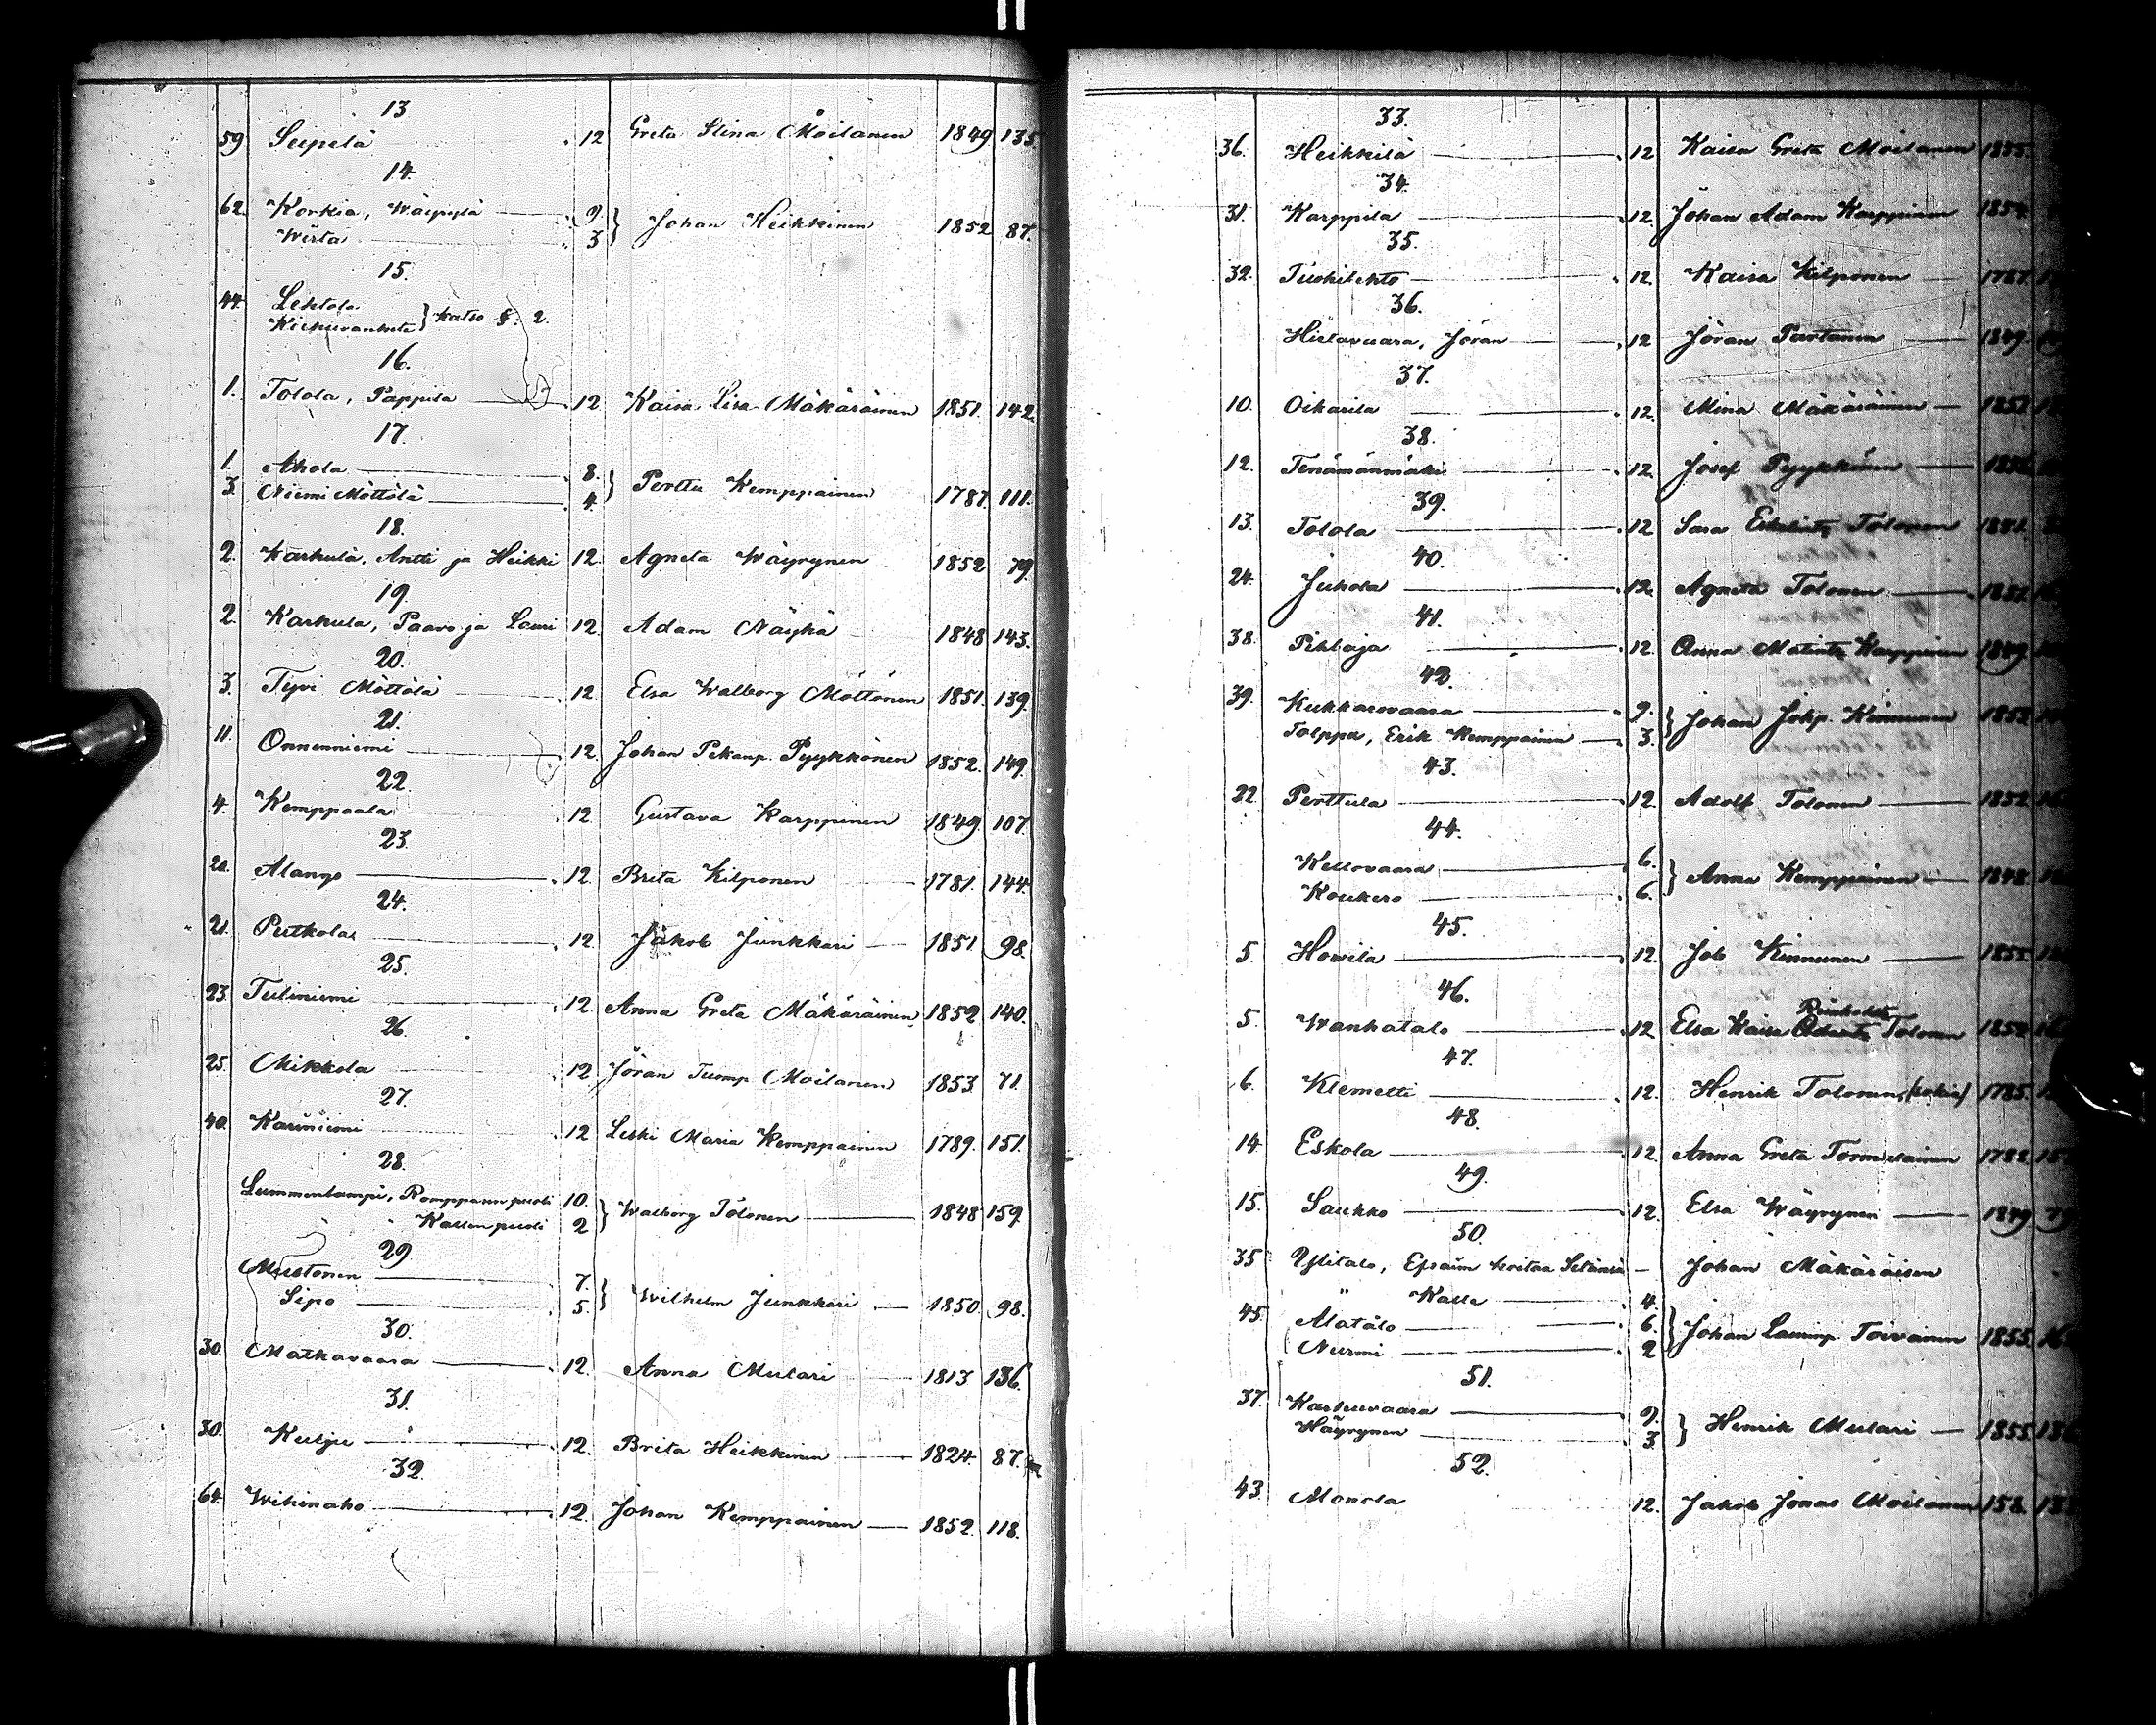 13
59 Seipelä 12 Greta Stina Moilanen 1849 135.
14.
62. Korkia, Wäyrylä 9.
Wirta 3 } Johan Heikkinen 1852 87.
15.
44. Lehtola
} katso §. 2.
16.
1. Tolola, Pappila 12 Kaisa Lisa Mäkäräinen 1851. 142
17.
1. Ahola 8.
3. Niemi Möttölä 4. } Perttu Kemppainen 1787. 111.
18.
2. Karhula, Antti ja Heikki 12. Agneta Wäyrynen 1852 79.
19.
2. Karhula, Paavo ja Lauri 12. Adam Näykä 1848 143.
20.
3. Tyvi Möttölä 12. Elsa Walborg Möttönen 1851. 139.
21.
11. Onnenniemi 12. Johan Pekanp. Pyykkönen 1852. 149.
22.
4. Kemppaala 12. Gustava Karppinen 1849. 107.
23.
20. Alango 12. Brita Kilponen 1781. 144.
24.
21. Putkola 12. Jakob Junkkari 1851 98.
25.
23. Tuliniemi 12. Anna Greta Mäkäräinen 1852 140.
26.
25. Mikkola 12. Jöran Tuomp. Moilanen 1853. 71.
27.
40. Kariniemi 12. Leski Maria Kemppainen 1789. 151.
28.
Lummenlampi, Romppasen puoli 10.
" Kallen puoli 2 } Walborg Tolonen 1848 159.
29.
Mustonen 7.
Sipo 5. } Wilhelm Junkkari 1850. 98.
30.
30. Matkavaara 12. Anna Mulari 1813 136.
31.
30. Kulju 12. Brita Heikkinen 1824. 87.
32.
64. Wihinaho 12. Johan Kemppainen 1852. 118.
33.
36. Heikkilä 12 Kaisa Greta Moilanen 1855.
34.
31. Karppila 12. Johan Adam Karppinen 1854.
35.
32. Tuohilehto 12. Kaisa Kilponen 1787.
36.
Hietavaara, Jöran 12 Jöran Partanen 1849.
37.
10. Oikarila 12. Mina Mäkäräinen
38.
12. Tenämänmäki 12. Josef Pyykkönen
39.
13. Tolola 12 Sara Tolonen
40.
24. Juhola 12. Agneta Tolonen
41.
38. Pihlaja 12. Anna Karppinen 1849.
42.
39. Kukkarovaara 9.
Tolppa, Erik Kemppainen 3. } Johan Johp. Kinnunen
43.
22. Perttula 12. Adolf Tolonen 1852
44.
Kellovaara 6.
Koukero 6. } Anna Kemppainen 1848.
45.
5. Howila 12. Job Kinnunen 1855.
46.
5. Wanhatalo 12. Elsa Kaisa Tolonen 1852
47.
6. Klemetti 12. Henrik Tolonen, (sokia) 1785.
48.
14. Eskola 12. Anna Greta Tormulainen 1782.
49.
15. Saukko 12. Elsa Wäyrynen 1849
50.
35 Ylitalo, Efraim hoitaa Setänsä Johan Mäkäräisen
" Kalle 4.
45. Alatalo 6.
Nurmi 2 } Johan Laurinp. Toivainen 1855.
51.
37. Karhuvaara 9.
Häyrynen 3. } Henrik Mulari 1855.
52.
43. Monola 12. Jakob Jonas Moilanen